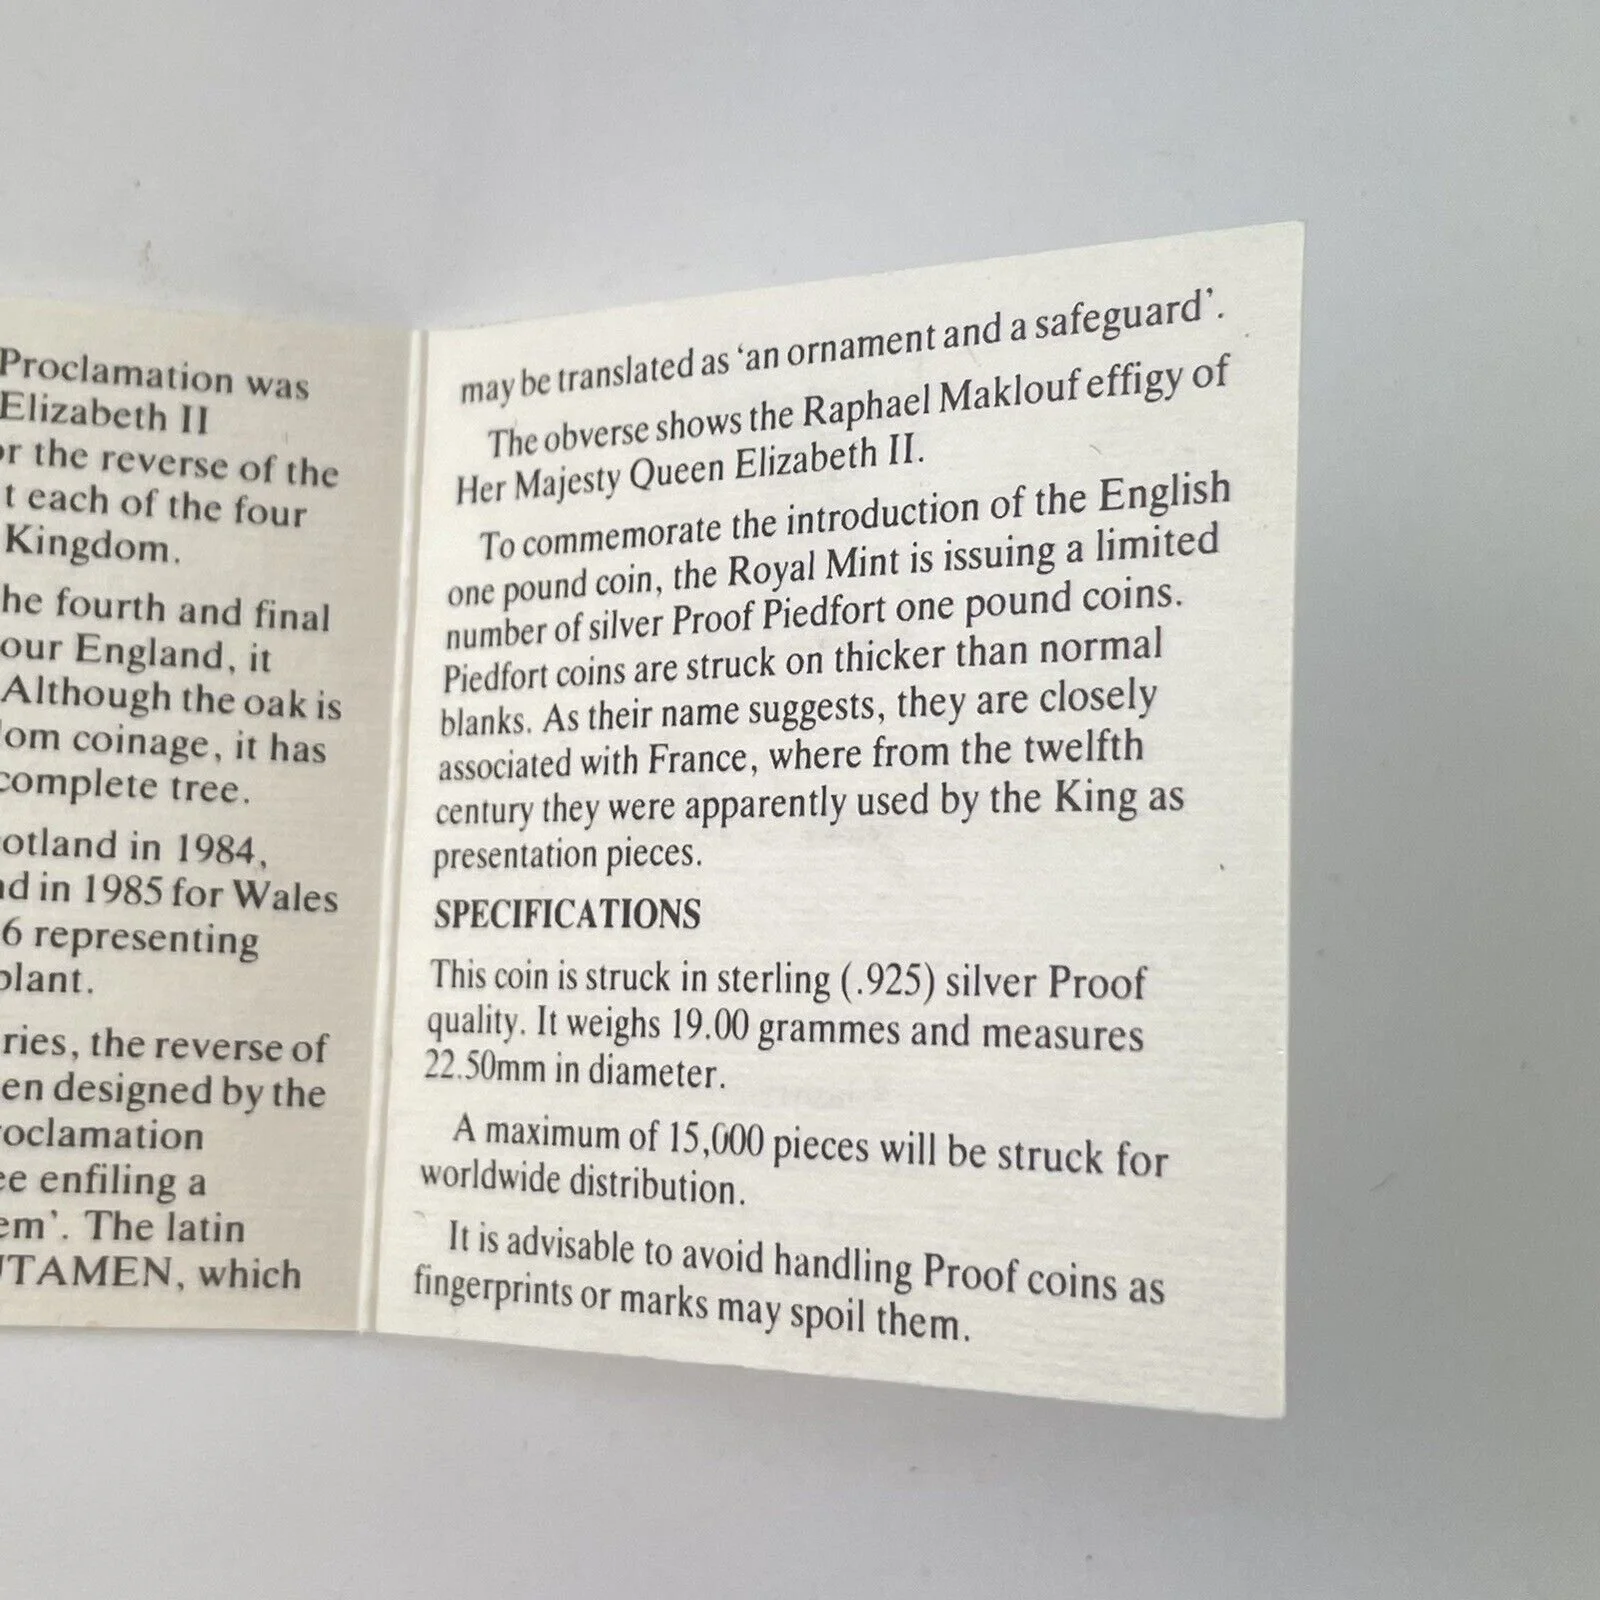 Proclamation was
Elizabeth II
or the reverse of the
t each of the four
Kingdom.
he fourth and final
our England, it
Although the oak is
om coinage, it has
complete tree.
otland in 1984,
nd in 1985 for Wales
6 representing
plant.
ries, the reverse of
en designed by the
roclamation
ee enfiling a
em'. The latin
UTAMEN, which
may be translated as 'an ornament and a safeguard'.
The obverse shows the Raphael Maklouf effigy of
Her Majesty Queen Elizabeth II.
To commemorate the introduction of the English
one pound coin, the Royal Mint is issuing a limited
number of silver Proof Piedfort one pound coins.
Piedfort coins are struck on thicker than normal
blanks. As their name suggests, they are closely
associated with France, where from the twelfth
century they were apparently used by the King as
presentation pieces.
SPECIFICATIONS
This coin is struck in sterling (.925) silver Proof
quality. It weighs 19.00 grammes and measures
22.50mm in diameter.
A maximum of 15,000 pieces will be struck for
worldwide distribution.
It is advisable to avoid handling Proof coins as
fingerprints or marks may spoil them.